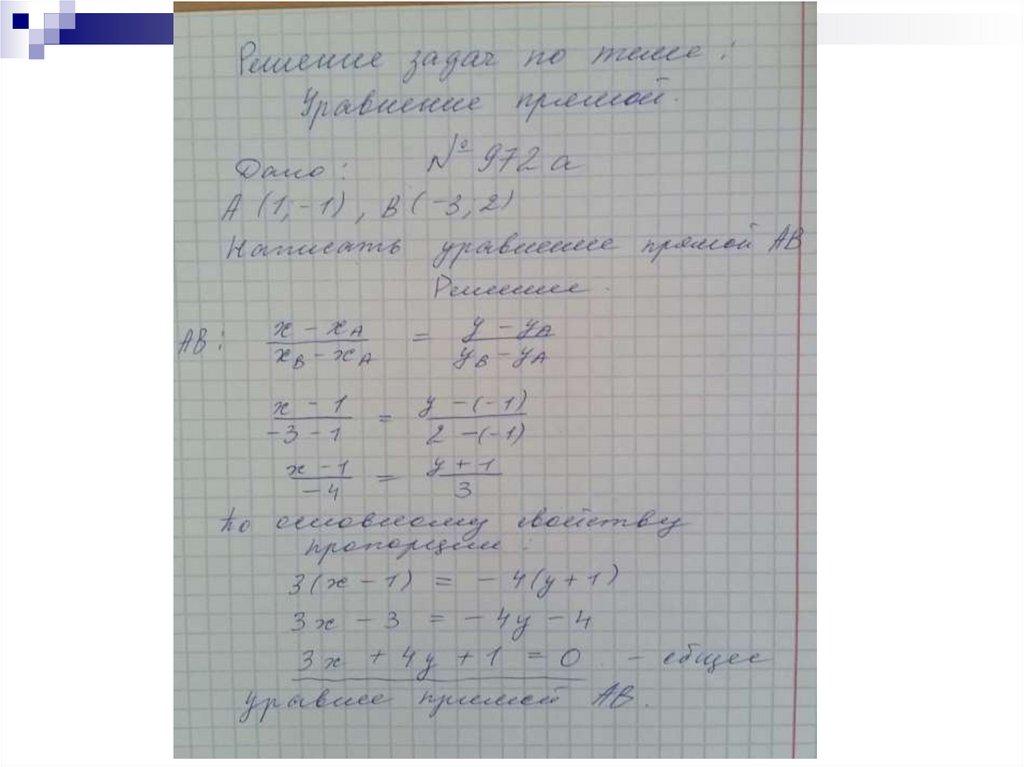 Решение задач по теме:
Уравнение прямой.
Дано: № 972 а
А (1; -1), В (-3; 2)
Написать уравнение прямой АВ
Решение.
АВ: (x - xA)/(xB - xA) = (y - yA)/(yB - yA)
(x - 1)/(-3 - 1) = (y - (-1))/(2 - (-1))
(x - 1)/(-4) = (y + 1)/3
По основному свойству
пропорции:
3(x - 1) = - 4(y + 1)
3x - 3 = - 4y - 4
3x + 4y + 1 = 0. - общее
уравнее прямой АВ.